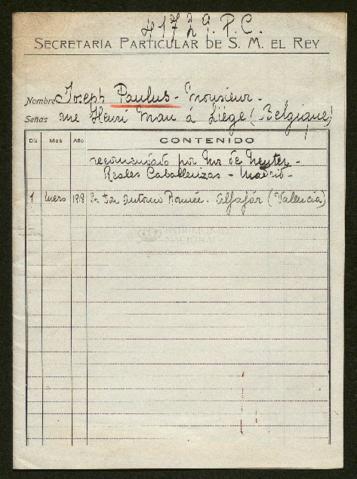 4172 G. P. C.
SECRETARIA PARTICULAR DE S. M. EL REY
Nombre Joseph Paulus - Monsieur -
Señas rue Henri Maus à Liège (Belgique)
Dia Mes Año CONTENIDO
recomendado por Mr de
Reales Caballerizas - Madrid -
1 Enero 1918 Antonio Ramón. Alfafar (Valencia)